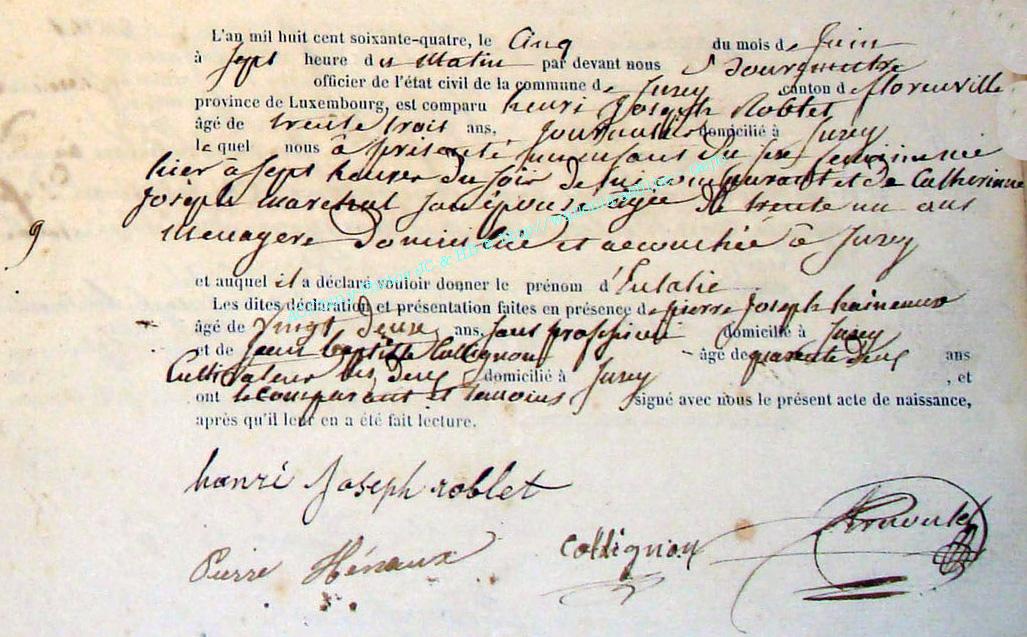 L'an mil huit cent soixante-quatre, le Cinq du mois de Juin
à sept heure du Matin par devant nous Bourgmestre
officier de l'état civil de la commune de canton de florenville
province de Luxembourg, est comparu henri Joseph Roblet
âgé de trente trois ans, Journalier domicilié à
lequel nous à présenté un enfant du sexe feminin né
hier à sept heures du soir de lui comparant et de Catherinne
Joseph Marechal son épouse agée de trente un ans
9 Menagere domiciliée et accouchée à
et auquel il a déclaré vouloir donner le prénom d'Eulalie
Les dites déclaration et présentation faites en présence de pierre Joseph
âgé de Vingt Deux ans, sans profession domicilié à
et de Jean baptiste Collignon âgé de quarante deux ans
Cultivateur les deux domicilié à , et
ont le comparant et temoins signé avec nous le présent acte de naissance,
après qu'il leur en a été fait lecture.
henri Joseph roblet
Pierre Hénaux Collignon